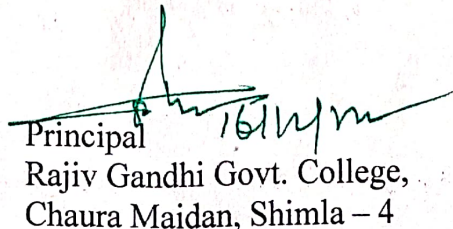 Principal
Rajiv Gandhi Govt. College,
Chaura Maidan, Shimla – 4